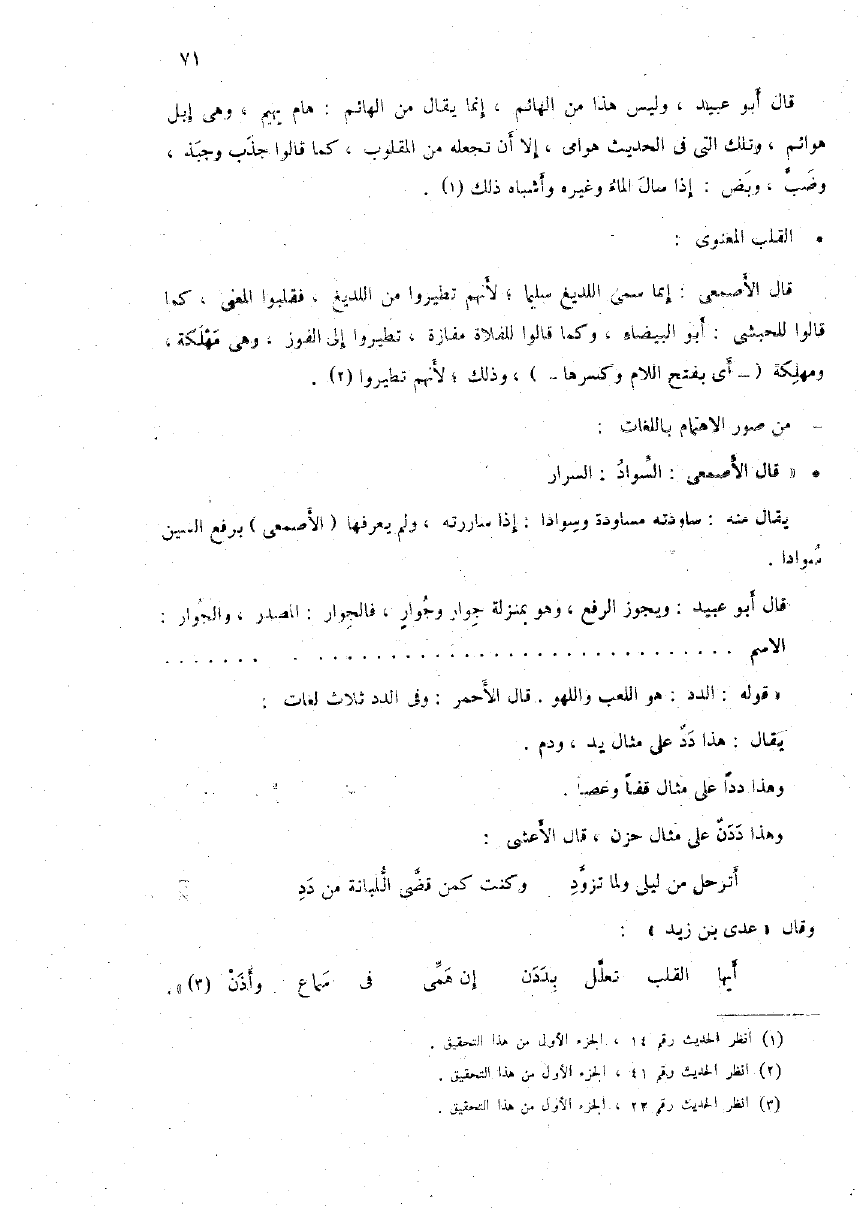 ٧١
قال أبو عبيد ، وليس هذا من الهائم ، إنما يقال من الهائم : هام يهيم ، وهى إبل
هوائم ، وتلك التى فى الحديث هوامى ، إلا أن تجعله من المقلوب ، كما قالوا جذَب وجبَذ ،
وضَبَّ ، وبَض : إذا سالَ الماءُ وغيره وأشباه ذلك (١) .
• القلب المعنوى :
قال الأصمعى : إنما سمىَ اللديغ سليما ؛ لأنهم تطيروا من اللديغ ، فقلبوا المعنى ، كما
قالوا للحبشى : أبو البيضاء ، وكما قالوا للفلاة مفازة ، تطيروا إلى الفوز ، وهى مَهْلَكة ،
ومهلِكة ( – أى بفتح اللام وكسرها – ) ، وذلك ؛ لأنهم تطيروا (٢) .
– من صور الاهتمام باللغات :
• « قال الأصمعى : السِّوادُ : السرار
يقال منه : ساودته مساودة وسِوادا : إذا ساررته ، ولم يعرفها ( الأصمعى ) برفع السين
سُوادا .
قال أبو عبيد : ويجوز الرفع ، وهو بمنزلة جِوار وجُوارٍ ، فالجِوار : المصدر ، والجُوار :
الاسم . . . . . . . . . . . . . . . . . . . . . . . . . . . . . . . . . . . .
« قوله : الدد : هو اللعب واللهو . قال الأحمر : وفى الدد ثلاث لغات :
يقال : هذا دَدٌ على مثال يد ، ودم .
وهذا دداً على مثال قفاً وعصا .
وهذا دَدَنٌ على مثال حزن ، قال الأعشى :
أترحل من ليلى ولما تزوَّدِ وكنت كمن قضَّى اللُّبانة من دَدِ
وقال « عدى بن زيد » :
أيها القلب تعلَّل بِدَدَن إن هَمِّى فى سَماع وأذَنْ (٣) » .
(١) انظر الحديث رقم ١٤ ، الجزء الأول من هذا التحقيق .
(٢) انظر الحديث رقم ٤١ ، الجزء الأول من هذا التحقيق .
(٣) انظر الحديث رقم ٢٣ ، الجزء الأول من هذا التحقيق .